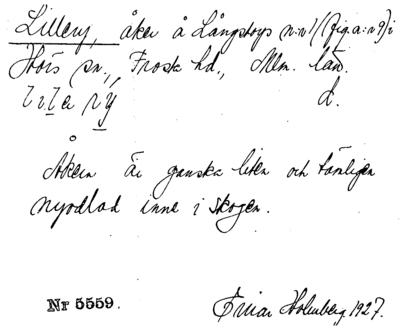 Lillery, åker å Långstorps n:r 1/(fig. a: n 9) i
Hörs sn., Frosta hd., Mlm. län.
d.
Åkern är ganska liten och tämligen
nyodlad inne i skogen.
Nr 5559. Einar Holmberg 1927.